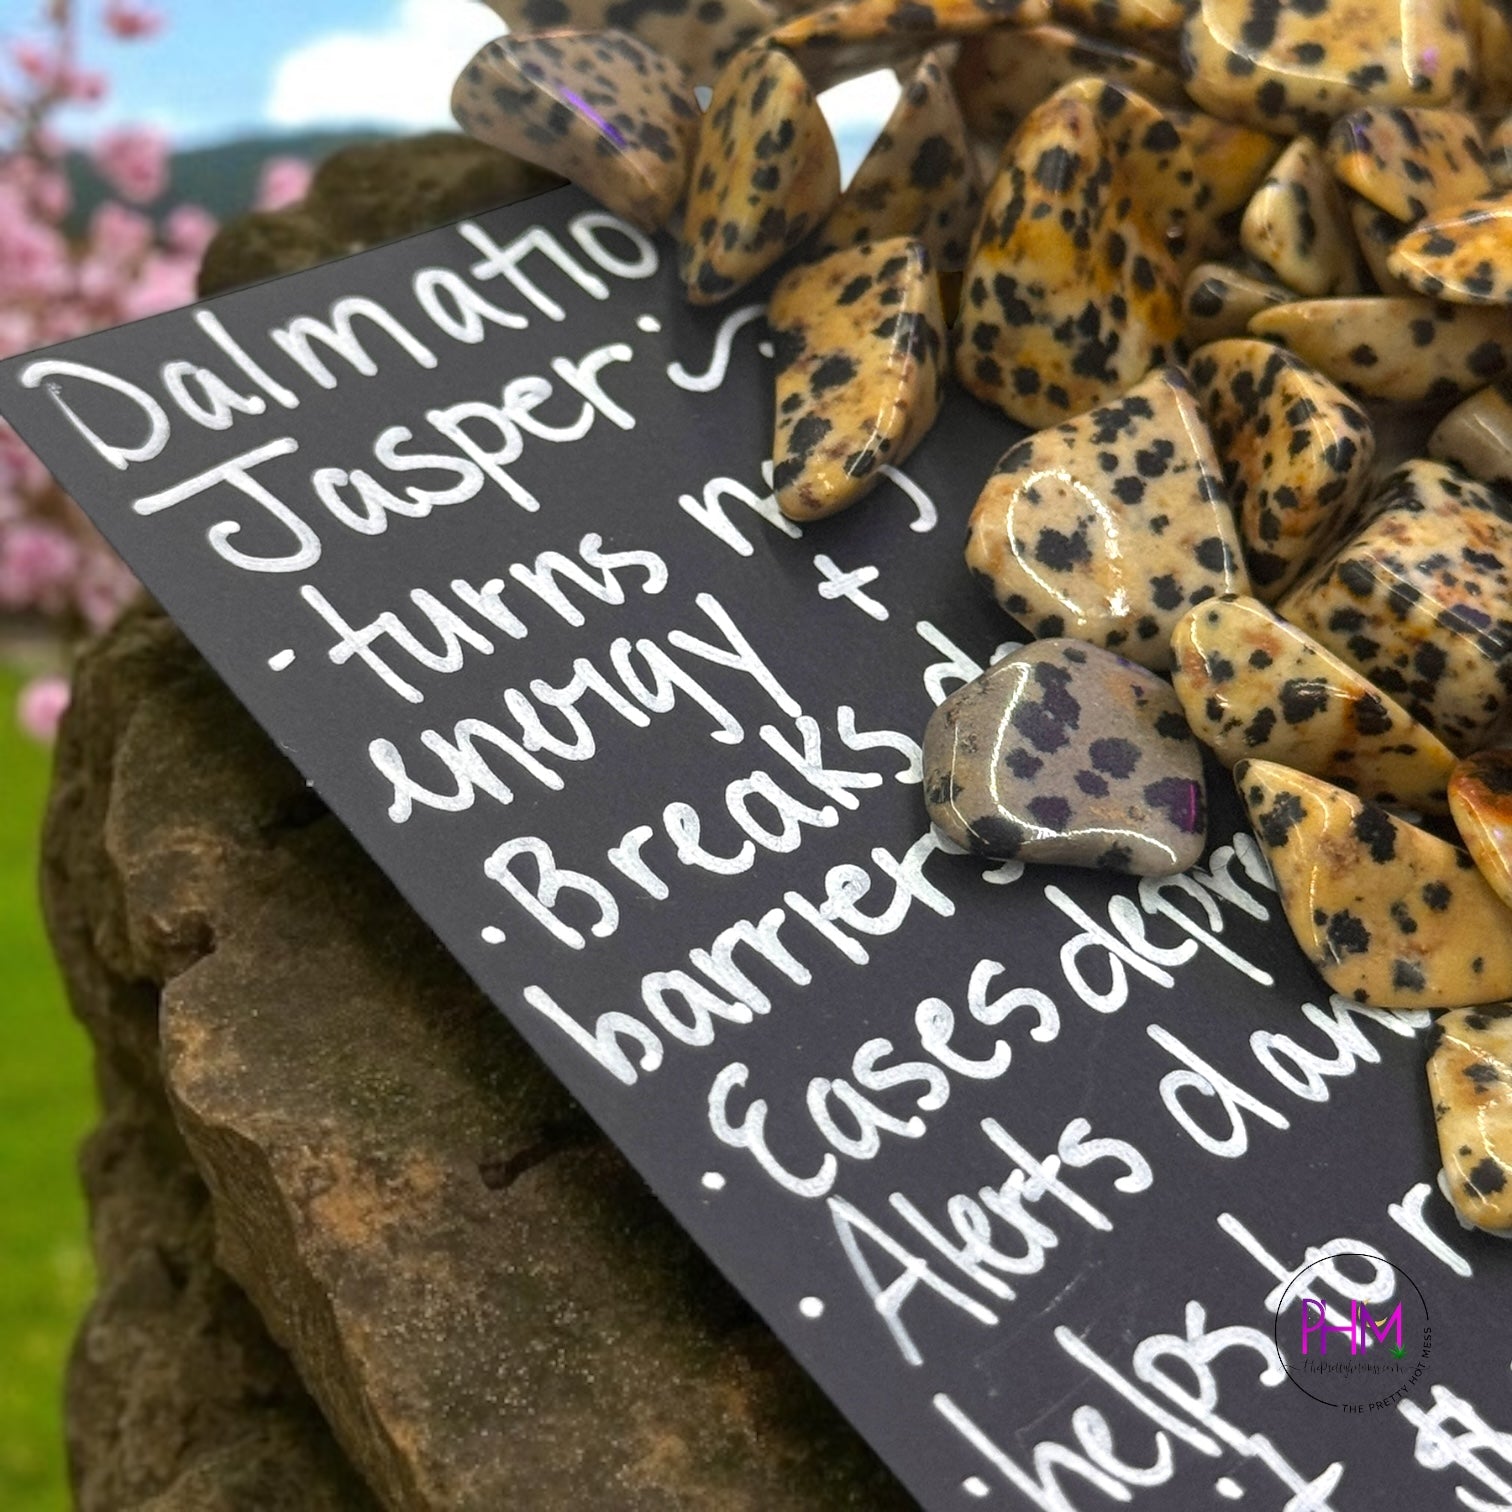 Dalmatio
Jasper:
· turns +
energy
· Breaks
barriers
· Eases depr
· Alerts dan
· helps to r
· I #
PHM
theprettyhotmess.com
THE PRETTY HOT MESS